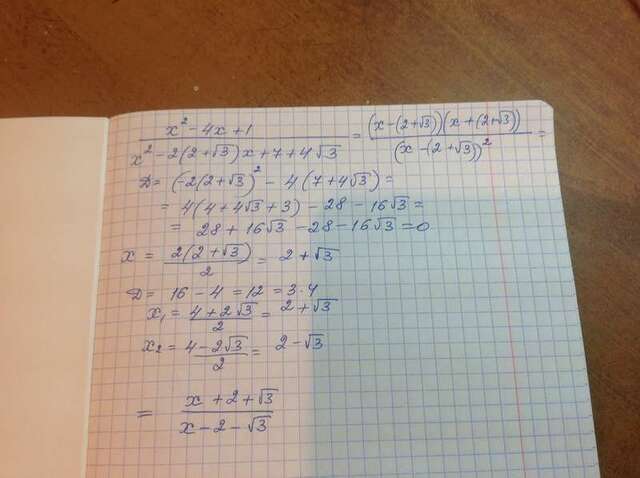 (x² - 4x + 1)/(x² - 2(2+√3)x + 7 + 4√3) = ((x - (2+√3))(x + (2+√3)))/((x - (2+√3))²) =
D = (-2(2+√3)² - 4(7+4√3) =
= 4(4 + 4√3 + 3) - 28 - 16√3 =
= 28 + 16√3 - 28 - 16√3 = 0
x = (2(2+√3))/2 = 2 + √3
D = 16 - 4 = 12 = 3·4
x₁ = (4 + 2√3)/2 = 2 + √3
x₂ = (4 - 2√3)/2 = 2 - √3
= (x + 2 + √3)/(x - 2 - √3)